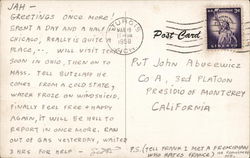 JAH —
GREETINGS ONCE MORE!
SPENT A DAY AND A HALF IN
CHICAGO, REALLY IS QUITE A
PLACE, --. WILL VISIT TED
SOON IN OHIO, THEN ON TO
MASS. TELL BUTZLAFF HE
COMES FROM A COLD STATE,
WATER FROZE ON WINDSHIELD,
FINALLY FEEL FREE + HAPPY
AGAIN, IT WILL BE HELL TO
REPORT IN ONCE MORE, RAN
OUT OF GAS YESTERDAY, WAITED
3 HRS FOR HELP -
STURGIS
MAR
1958
MICH
Post Card
LIBERTY
PVT JOHN ABUCEWICZ
CO A, 3RD PLATOON
PRESIDIO OF MONTEREY
CALIFORNIA
P.S. (TELL FRANK I MET A FRENCHMAN
WHO HATES FRANCE)